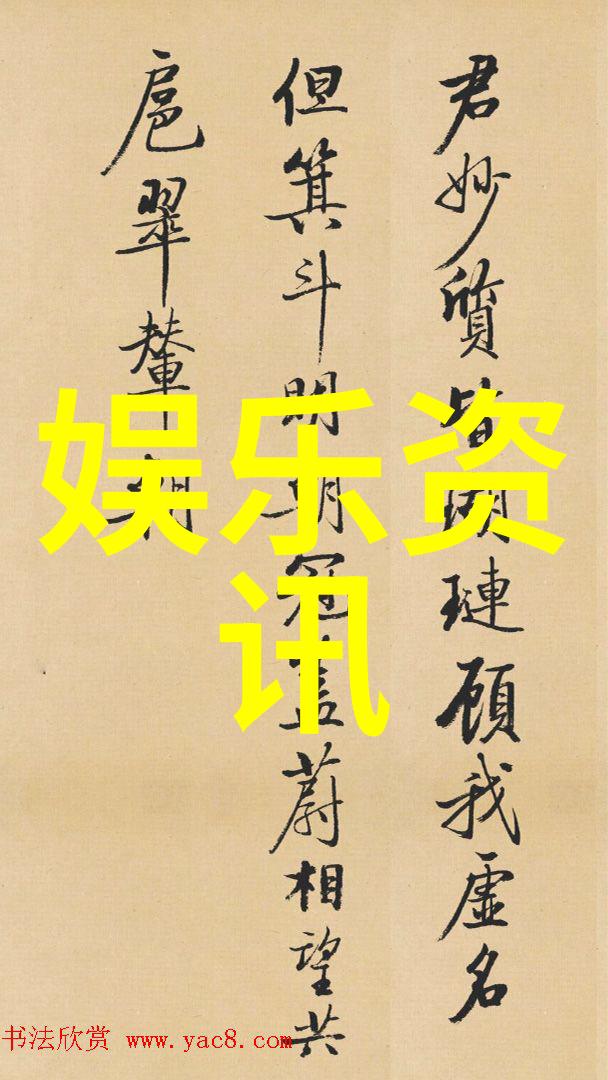 君妙質皆瑚璉顧我虛名
但箕斗明朝冠蓋蔚相望共
扈翠輦朝
娱乐资
讯
书法欣赏 www.yac8.com